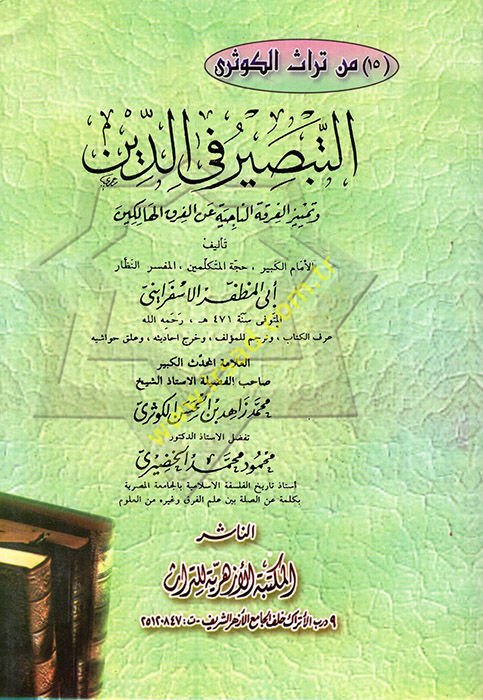 (١٥) من تراث الكوثرى
التبصير فى الدين
وتمييز الفرقة الناجية عن الفرق الهالكين
تأليف
الأمام الكبير ، حجة المتكلمين ، المفسر النظار
أبى المظفر الاسفراينى
المتوفى سنة ٤٧١ هـ ، رحمه الله
عرف الكتاب ، وترجم للمؤلف ، وخرج أحاديثه ، وعلق حواشيه
العلامة المحدث الكبير
صاحب الفضيلة الاستاذ الشيخ
محمد زاهد بن الحسن الكوثرى
تفضل الاستاذ الدكتور
محمود محمد الخضيرى
أستاذ تاريخ الفلسفة الاسلامية بالجامعة المصرية
بكلمة عن الصلة بين علم الفرق وغيره من العلوم
الناشر
المكتبة الأزهرية للتراث
٩ درب الأتراك خلف الجامع الأزهر الشريف - ت : ٢٥١٢٠٨٤٧